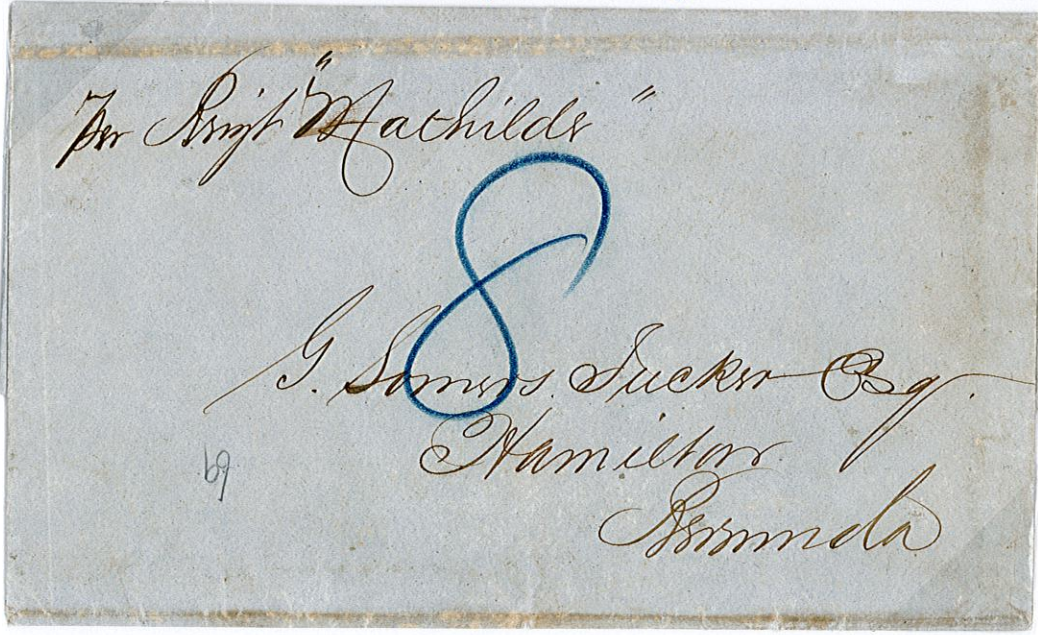 Per Brigt "Mathilde"
8
G. Somers Tucker Esq.
Hamilton
Bermuda
69